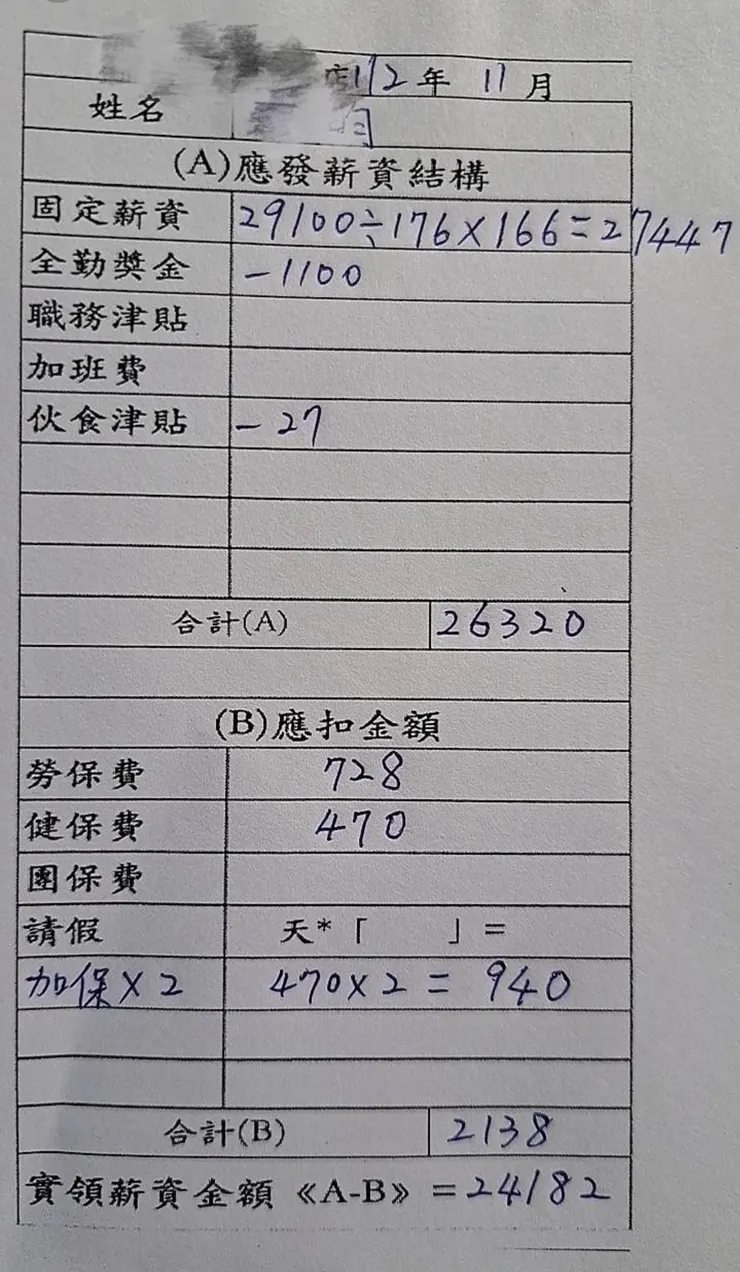 店112年 11月
姓名
(A)應發薪資結構
固定薪資 29100÷176×166=27447
全勤獎金 -1100
職務津貼
加班費
伙食津貼 -27
合計(A) 26320
(B)應扣金額
勞保費 728
健保費 470
團保費
請假 天*「 」=
加保×2 470×2 = 940
合計(B) 2138
實領薪資金額《A-B》=24182